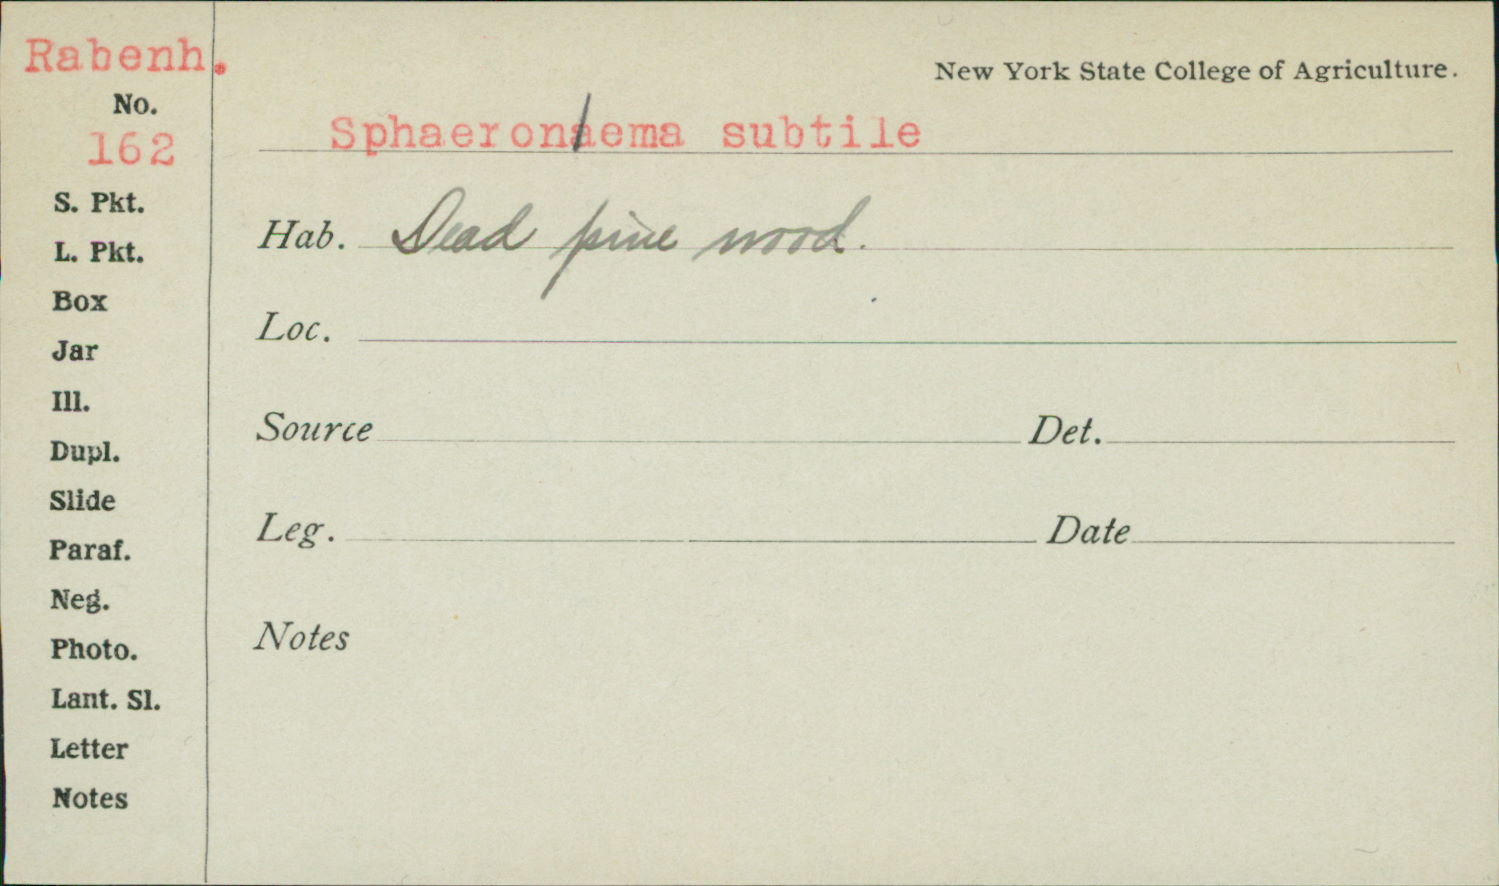 Rabenh.
New York State College of Agriculture.
No.
162
Sphaeronaema subtile
S. Pkt.
Hab. Dead pine wood.
L. Pkt.
Box
Loc.
Jar
Ill.
Source Det.
Dupl.
Slide
Leg. Date
Paraf.
Neg.
Notes
Photo.
Lant. Sl.
Letter
Notes